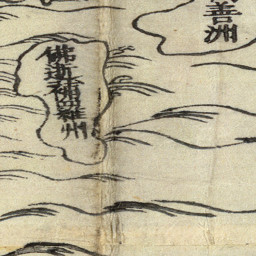 善洲
佛逝補羅州